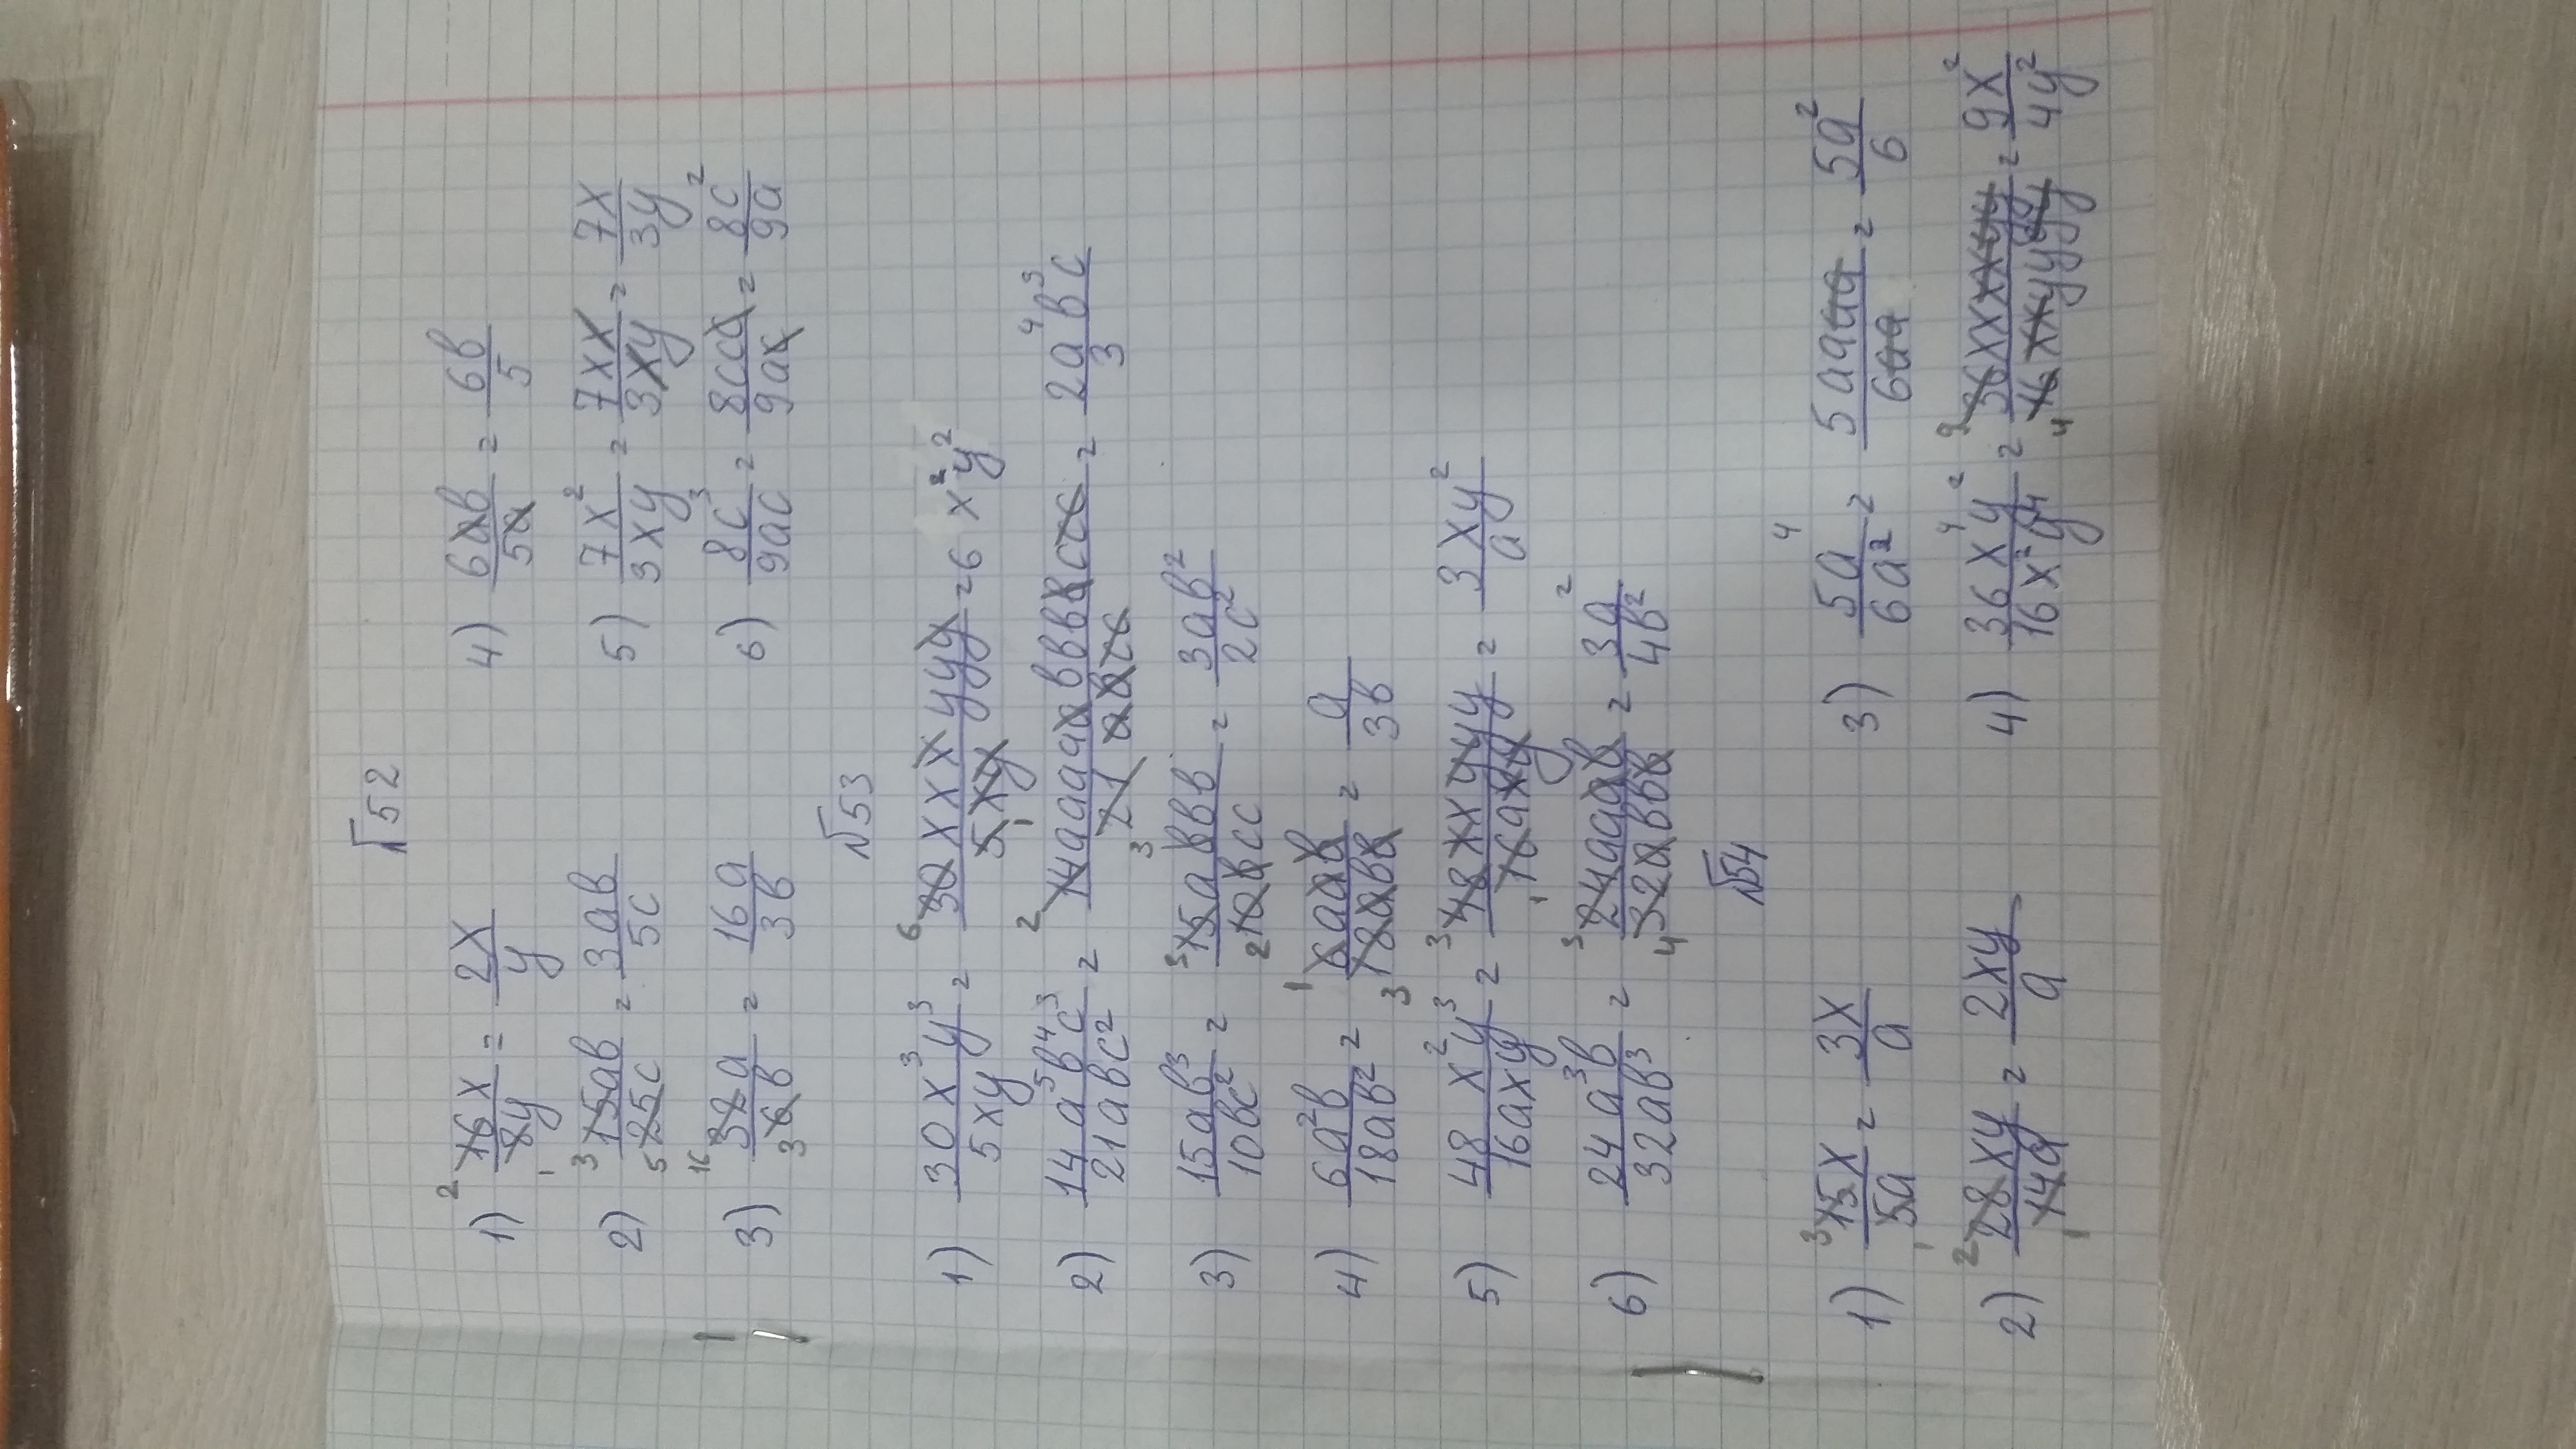 №52
1) 16x/8y = 2x/y 4) 6ab/5a = 6b/5
2) 15ab/25c = 3ab/5c 5) 7x²/3xy = 7xx/3xy = 7x/3y
3) a/b = 16a/3b 6) 8c³/9ac = 8ccc/9ac = 8c²/9a
№53
1) 30x³y³/5xy = 30xxxyyy/5xy = 6x²y²
2) 14a⁵b⁴c³/21abc² = 14aaaaabbbbccc/21abcc = 2a⁴b³c/3
3) 15ab³/10bc² = 15abbb/10bcc = 3ab²/2c²
4) 6a²b/18ab² = 6aab/18abb = a/3b
5) 48x²y³/16axy = 48xxyyy/16axy = 3xy²/a
6) 24a³b/32ab³ = 24aaab/32abbb = 3a²/4b²
№54
1) 15x/5a = 3x/a 3) 5a⁴/6a² = 5aaaa/6aa = 5a²/6
2) 28xy/14a = 2xy/a 4) 36x⁴y²/16x²y⁴ = 36xxxxyy/16xxyyyy = 9x²/4y²